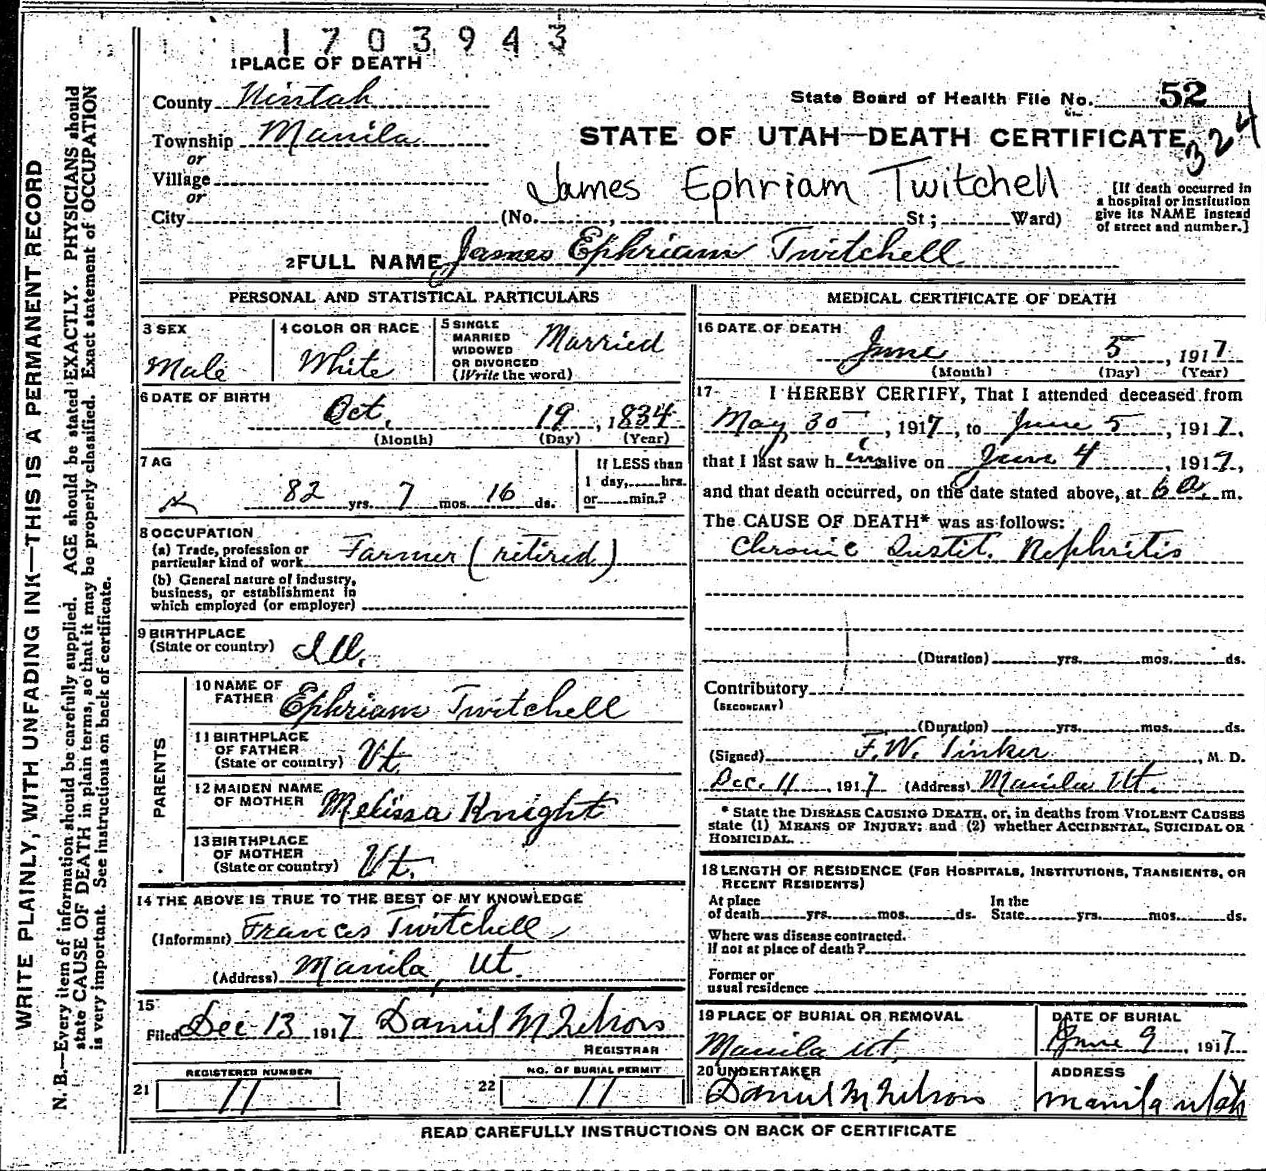 1703943
1 PLACE OF DEATH
County Uintah
State Board of Health File No. 52
Township Manila
STATE OF UTAH—DEATH CERTIFICATE
324
or
Village
James Ephriam Twitchell
or
City (No. , St; Ward)
[If death occurred in
a hospital or institution
give its NAME instead
of street and number.]
2 FULL NAME James Ephriam Twitchell
PERSONAL AND STATISTICAL PARTICULARS
3 SEX
Male
4 COLOR OR RACE
White
5 SINGLE
MARRIED
WIDOWED
OR DIVORCED
(Write the word)
Married
6 DATE OF BIRTH
Oct. 19, 1834
(Month) (Day) (Year)
7 AG
82 yrs. 7 mos. 16 ds.
If LESS than
1 day, hrs.
or min.?
8 OCCUPATION
(a) Trade, profession or
particular kind of work Farmer (retired)
(b) General nature of industry,
business, or establishment in
which employed (or employer)
9 BIRTHPLACE
(State or country) Ill.
PARENTS
10 NAME OF
FATHER Ephriam Twitchell
11 BIRTHPLACE
OF FATHER
(State or country) Vt.
12 MAIDEN NAME
OF MOTHER Melissa Knight
13 BIRTHPLACE
OF MOTHER
(State or country) Vt.
14 THE ABOVE IS TRUE TO THE BEST OF MY KNOWLEDGE
(Informant) Frances Twitchell
(Address) Manila, Ut.
15
Filed Dec 13 1917 Daniel M Nelson
REGISTRAR
REGISTERED NUMBER
21 11
NO. OF BURIAL PERMIT
22 11
MEDICAL CERTIFICATE OF DEATH
16 DATE OF DEATH
June 5, 1917
(Month) (Day) (Year)
17 I HEREBY CERTIFY, That I attended deceased from
May 30, 1917, to June 5, 1917,
that I last saw him alive on June 4, 1917,
and that death occurred, on the date stated above, at 6 a m.
The CAUSE OF DEATH* was as follows:
Chronic Nephritis
(Duration) yrs. mos. ds.
Contributory
(SECONDARY)
(Duration) yrs. mos. ds.
(Signed) F.W. Tinker, M. D.
Dec. 11, 1917 (Address) Manila Ut.
* State the DISEASE CAUSING DEATH, or, in deaths from VIOLENT CAUSES
state (1) MEANS OF INJURY; and (2) whether ACCIDENTAL, SUICIDAL OR
HOMICIDAL.
18 LENGTH OF RESIDENCE (FOR HOSPITALS, INSTITUTIONS, TRANSIENTS, OR
RECENT RESIDENTS)
At place
of death yrs. mos. ds.
In the
State yrs. mos. ds.
Where was disease contracted.
If not at place of death?
Former or
usual residence
19 PLACE OF BURIAL OR REMOVAL
Manila Ut.
DATE OF BURIAL
June 9, 1917
20 UNDERTAKER
Daniel M Nelson
ADDRESS
Manila Utah
READ CAREFULLY INSTRUCTIONS ON BACK OF CERTIFICATE
WRITE PLAINLY, WITH UNFADING INK—THIS IS A PERMANENT RECORD
N. B.—Every item of information should be carefully supplied. AGE should be stated EXACTLY. PHYSICIANS should
state CAUSE OF DEATH in plain terms, so that it may be properly classified. Exact statement of OCCUPATION
is very important. See instructions on back of certificate.